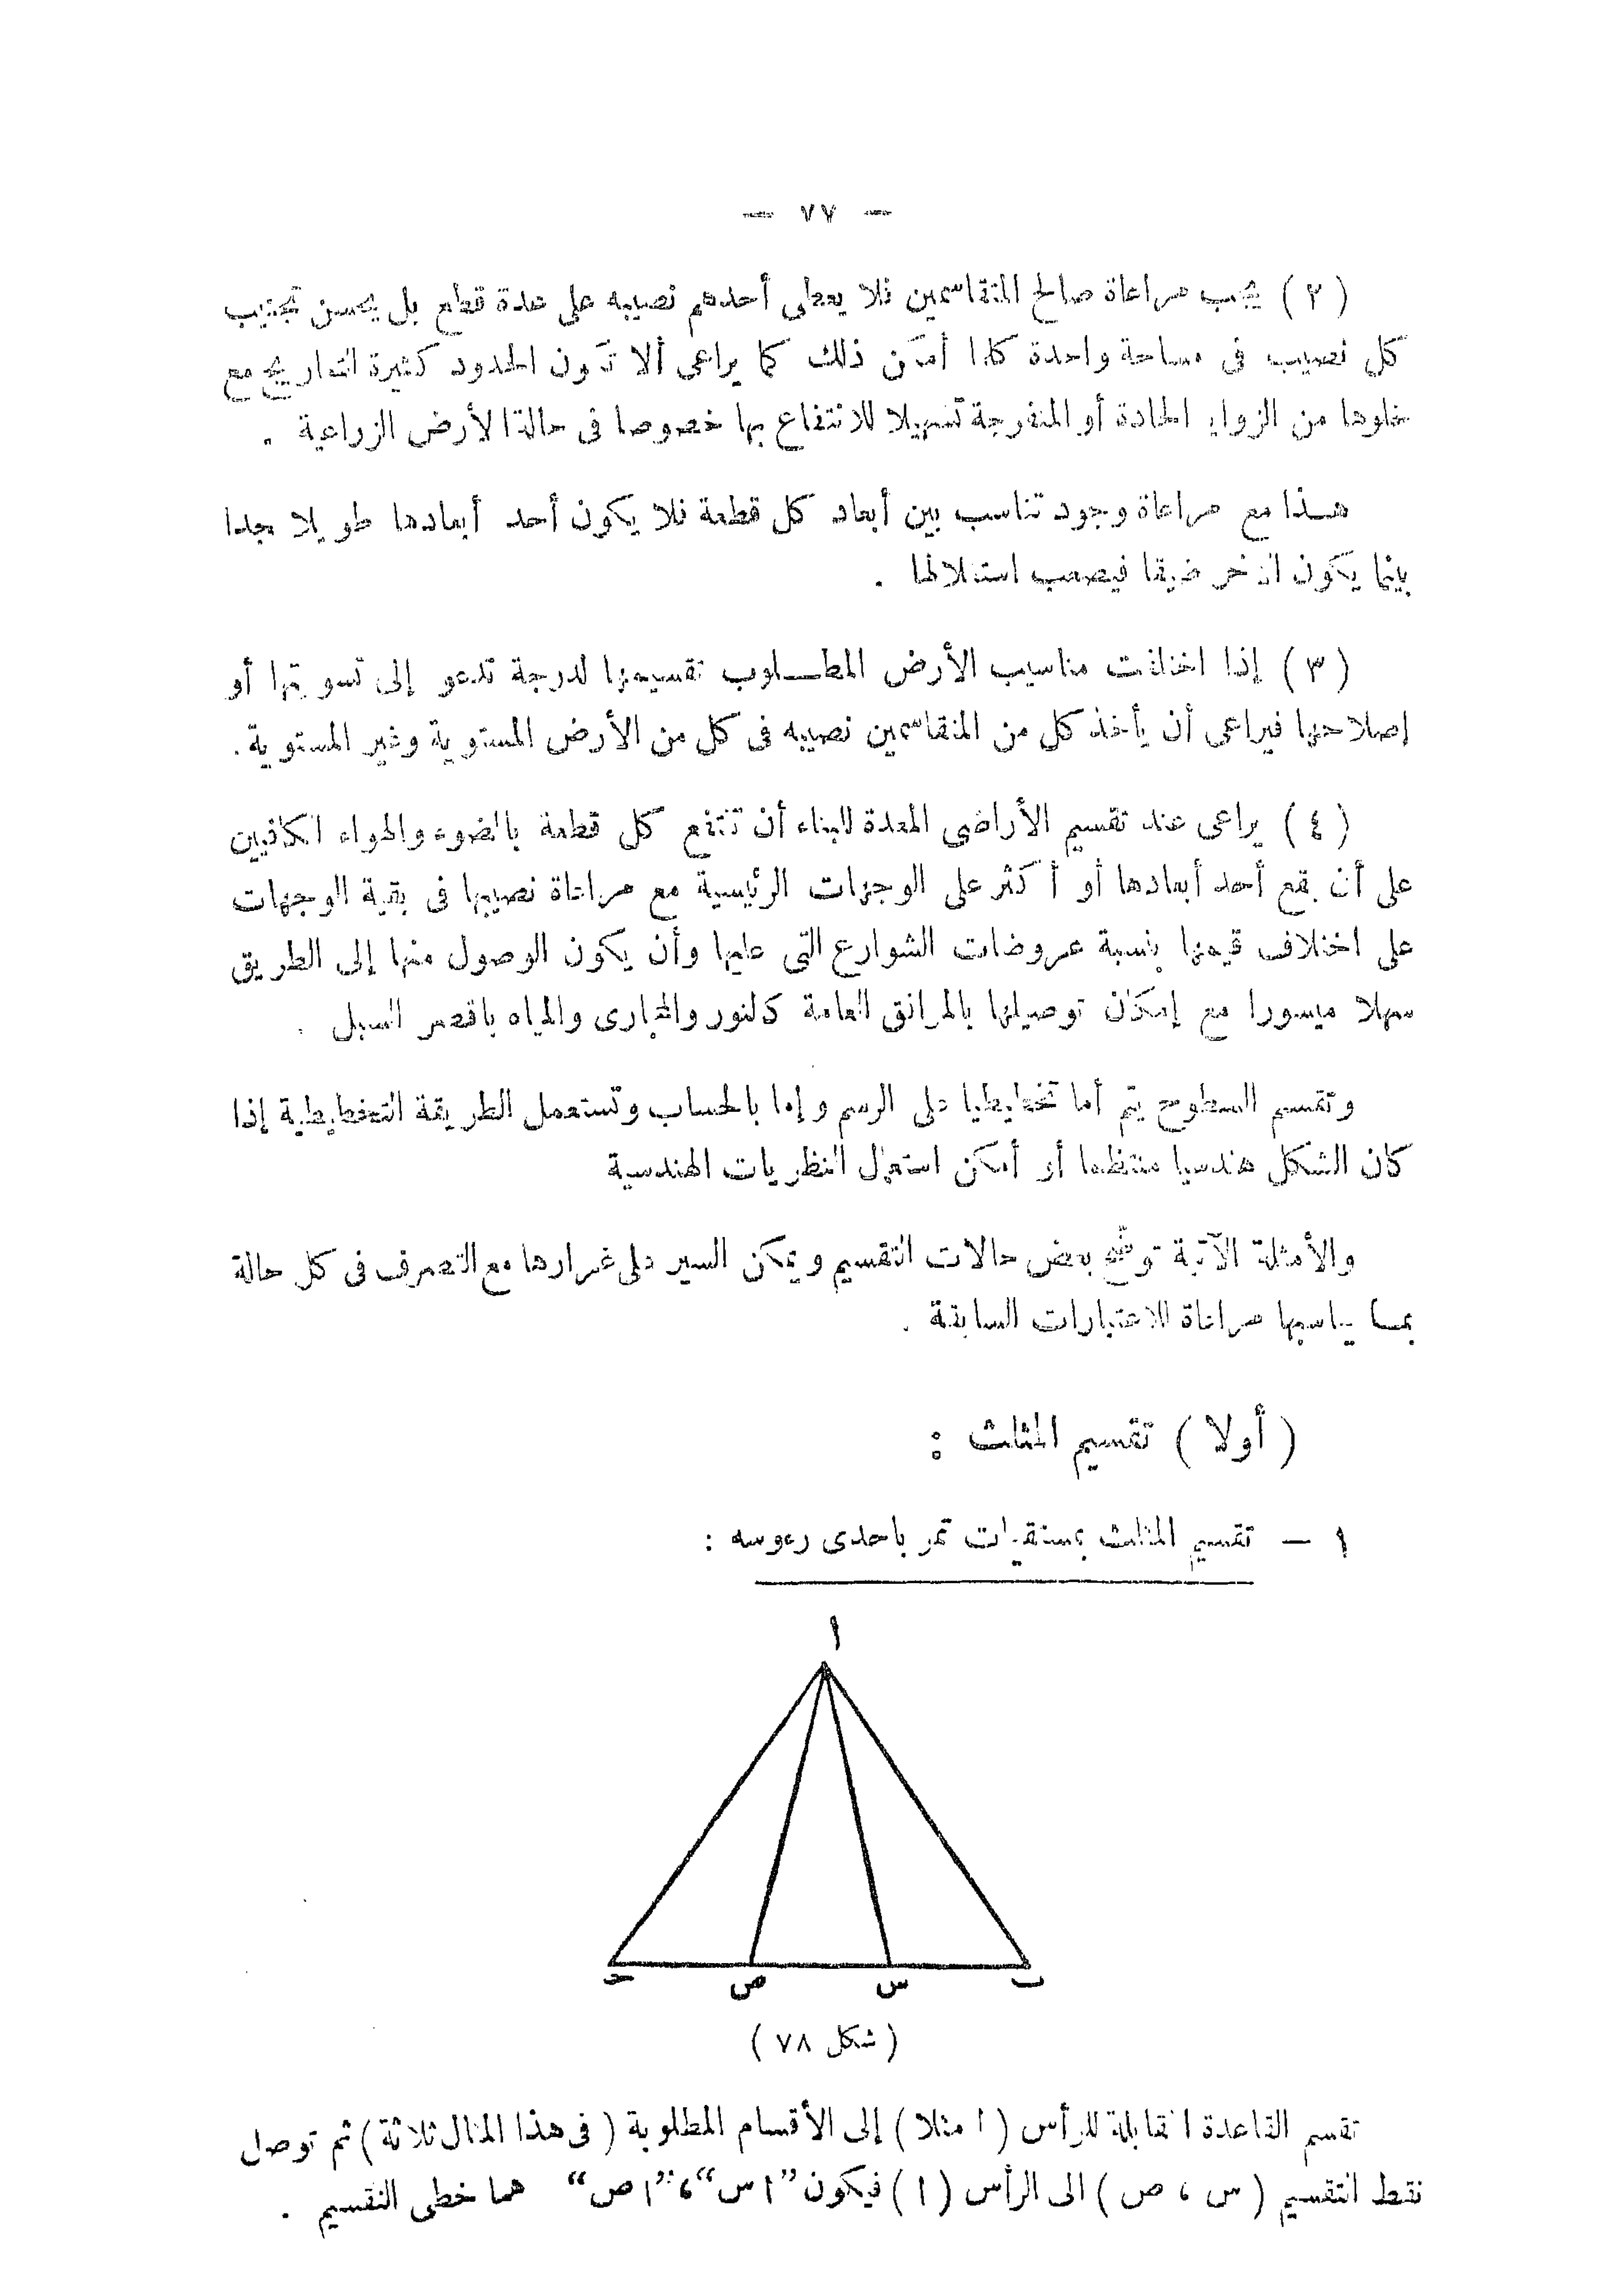 — ٧٧ —
( ٢ ) يجب مراعاة صالح المتقاسمين فلا يعطى أحدهم نصيبه على عدة قطع بل يحسن تجنيب
كل نصيب فى مساحة واحدة كلما أمكن ذلك كما يراعى ألا تكون الحدود كثيرة التعاريج مع
خلوها من الزوايا الحادة أو المنفرجة تسهيلا للانتفاع بها خصوصا فى حالة الأرض الزراعية .
هذا مع مراعاة وجود تناسب بين أبعاد كل قطعة فلا يكون أحد أبعادها طويلا جدا
بينما يكون الآخر ضيقا فيصعب استغلالها .
( ٣ ) إذا اختلفت مناسيب الأرض المطلوب تقسيمها لدرجة تدعو إلى تسويتها أو
إصلاحها فيراعى أن يأخذ كل من المتقاسمين نصيبه فى كل من الأرض المستوية وغير المستوية .
( ٤ ) يراعى عند تقسيم الأراضى المعدة للبناء أن تنتفع كل قطعة بالضوء والهواء الكافيين
على أن يقع أحد أبعادها أو أكثر على الوجهات الرئيسية مع مراعاة نصيبها فى بقية الوجهات
على اختلاف قيمتها بنسبة عروضات الشوارع التى عليها وأن يكون الوصول منها إلى الطريق
سهلا ميسورا مع إمكان توصيلها بالمرافق العامة كالنور والمجارى والمياه باقصر السبل .
وتقسيم السطوح يتم أما تخطيطيا على الرسم وإما بالحساب وتستعمل الطريقة التخطيطية إذا
كان الشكل هندسيا منتظما أو أمكن استعمال النظريات الهندسية
والأمثلة الآتية توضح بعض حالات التقسيم ويمكن السير على غرارها مع التصرف فى كل حالة
بما يناسبها مراعاة للاعتبارات السابقة .
( أولا ) تقسيم المثلث :
١ — تقسيم المثلث بمستقيمات تمر باحدى رءوسه :
ا
ح ص س ب
( شكل ٧٨ )
تقسم القاعدة المقابلة للرأس ( ا مثلا ) إلى الأقسام المطلوبة ( فى هذا المثال ثلاثة ) ثم توصل
نقط التقسيم ( س ، ص ) الى الرأس ( ا ) فيكون ”ا س“ ، ”ا ص“ هما خطى التقسيم .